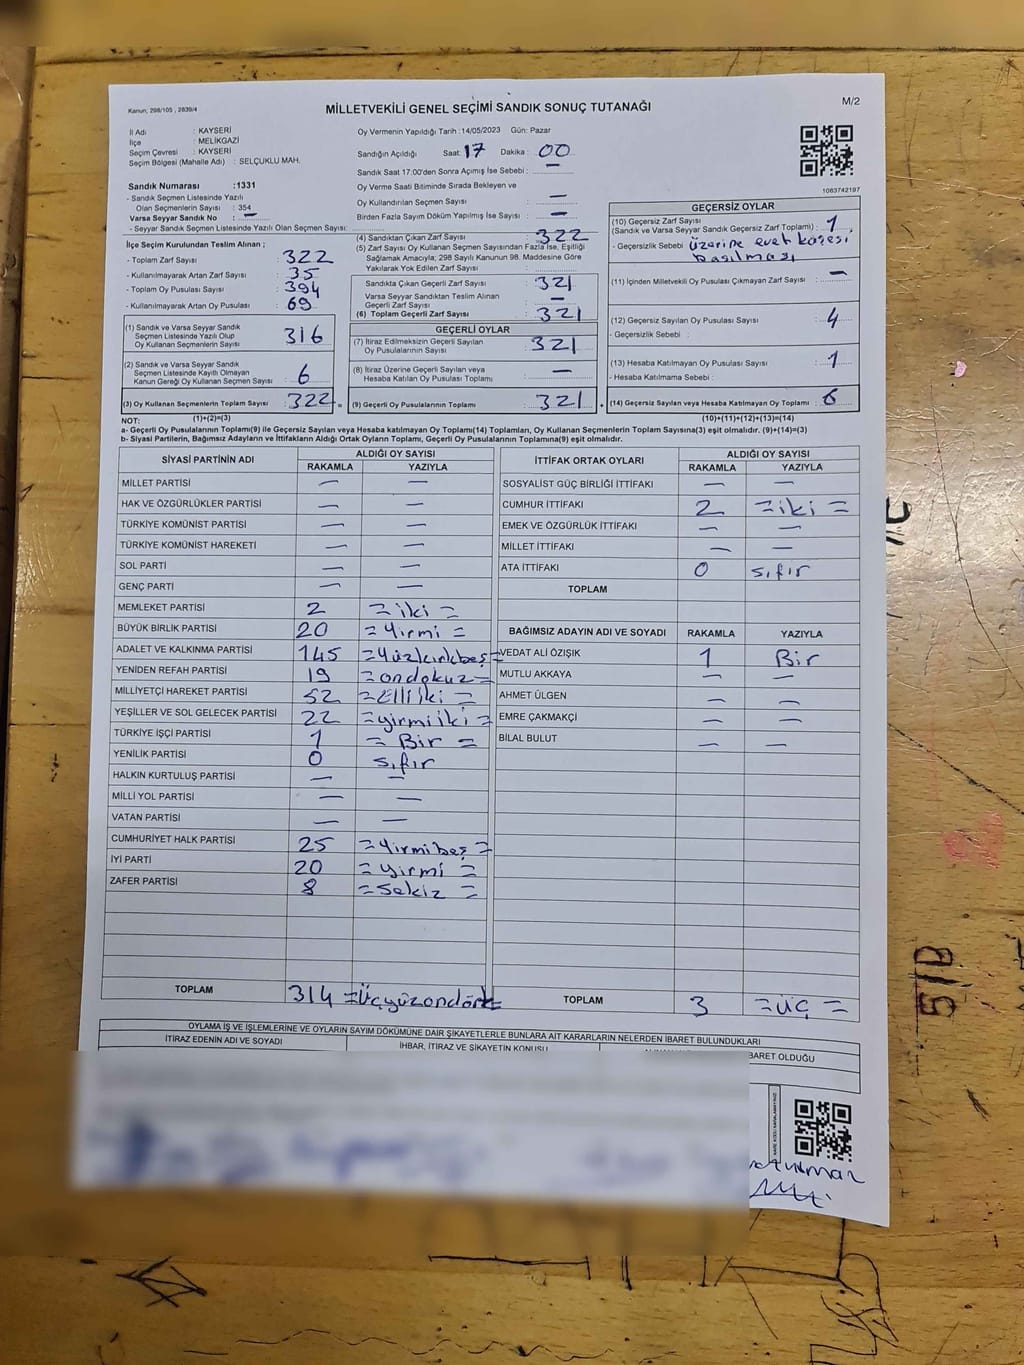 Kanun; 298/105 , 2839/4
MİLLETVEKİLİ GENEL SEÇİMİ SANDIK SONUÇ TUTANAĞI
M/2
İl Adı : KAYSERİ
İlçe : MELİKGAZİ
Seçim Çevresi : KAYSERİ
Seçim Bölgesi (Mahalle Adı) : SELÇUKLU MAH.
Sandık Numarası :1331
- Sandık Seçmen Listesinde Yazılı
Olan Seçmenlerin Sayısı : 354
Varsa Seyyar Sandık No : —
- Seyyar Sandık Seçmen Listesinde Yazılı Olan Seçmen Sayısı:
Oy Vermenin Yapıldığı Tarih :14/05/2023 Gün: Pazar
Sandığın Açıldığı Saat: 17 Dakika : 00
Sandık Saat 17:00'den Sonra Açımış İse Sebebi : —
Oy Verme Saati Bitiminde Sırada Bekleyen ve
Oy Kullandırılan Seçmen Sayısı : —
Birden Fazla Sayım Döküm Yapılmış İse Sayısı : —
1083742197
İlçe Seçim Kurulundan Teslim Alınan ;
- Toplam Zarf Sayısı : 322
- Kullanılmayarak Artan Zarf Sayısı : 35
- Toplam Oy Pusulası Sayısı : 394
- Kullanılmayarak Artan Oy Pusulası : 69
(1) Sandık ve Varsa Seyyar Sandık
Seçmen Listesinde Yazılı Olup
Oy Kullanan Seçmenlerin Sayısı : 316
(2) Sandık ve Varsa Seyyar Sandık
Seçmen Listesinde Kayıtlı Olmayan
Kanun Gereği Oy Kullanan Seçmen Sayısı : 6
(3) Oy Kullanan Seçmenlerin Toplam Sayısı : 322
(4) Sandıktan Çıkan Zarf Sayısı : 322
(5) Zarf Sayısı Oy Kullanan Seçmen Sayısından Fazla İse, Eşitliği
Sağlamak Amacıyla; 298 Sayılı Kanunun 98. Maddesine Göre
Yakılarak Yok Edilen Zarf Sayısı :
Sandıkta Çıkan Geçerli Zarf Sayısı : 321
Varsa Seyyar Sandıktan Teslim Alınan
Geçerli Zarf Sayısı : —
(6) Toplam Geçerli Zarf Sayısı : 321
GEÇERLİ OYLAR
(7) İtiraz Edilmeksizin Geçerli Sayılan
Oy Pusulalarının Sayısı : 321
(8) İtiraz Üzerine Geçerli Sayılan veya
Hesaba Katılan Oy Pusulası Toplamı : —
(9) Geçerli Oy Pusulalarının Toplamı : 321
GEÇERSİZ OYLAR
(10) Geçersiz Zarf Sayısı
(Sandık ve Varsa Seyyar Sandık Geçersiz Zarf Toplamı) : 1
- Geçersizlik Sebebi : üzerine evet kaşesi
basılması
(11) İçinden Milletvekili Oy Pusulası Çıkmayan Zarf Sayısı : —
(12) Geçersiz Sayılan Oy Pusulası Sayısı : 4
- Geçersizlik Sebebi :
(13) Hesaba Katılmayan Oy Pusulası Sayısı : 1
- Hesaba Katılmama Sebebi :
(14) Geçersiz Sayılan veya Hesaba Katılmayan Oy Toplamı : 6
NOT: (1)+(2)=(3) (10)+(11)+(12)+(13)=(14)
a- Geçerli Oy Pusulalarının Toplamı(9) ile Geçersiz Sayılan veya Hesaba katılmayan Oy Toplamı(14) Toplamları, Oy Kullanan Seçmenlerin Toplam Sayısına(3) eşit olmalıdır. (9)+(14)=(3)
b- Siyasi Partilerin, Bağımsız Adayların ve İttifakların Aldığı Ortak Oyların Toplamı, Geçerli Oy Pusulalarının Toplamına(9) eşit olmalıdır.
SİYASİ PARTİNİN ADI ALDIĞI OY SAYISI
RAKAMLA YAZIYLA
MİLLET PARTİSİ — —
HAK VE ÖZGÜRLÜKLER PARTİSİ — —
TÜRKİYE KOMÜNİST PARTİSİ — —
TÜRKİYE KOMÜNİST HAREKETİ — —
SOL PARTİ — —
GENÇ PARTİ — —
MEMLEKET PARTİSİ 2 =iki=
BÜYÜK BİRLİK PARTİSİ 20 =Yirmi=
ADALET VE KALKINMA PARTİSİ 145 =Yüzkırkbeş=
YENİDEN REFAH PARTİSİ 19 =ondokuz=
MİLLİYETÇİ HAREKET PARTİSİ 52 =Elliiki=
YEŞİLLER VE SOL GELECEK PARTİSİ 22 =yirmiiki=
TÜRKİYE İŞÇİ PARTİSİ 1 =Bir=
YENİLİK PARTİSİ 0 sıfır
HALKIN KURTULUŞ PARTİSİ — —
MİLLİ YOL PARTİSİ — —
VATAN PARTİSİ — —
CUMHURİYET HALK PARTİSİ 25 =Yirmibeş=
İYİ PARTİ 20 =yirmi=
ZAFER PARTİSİ 8 =sekiz=
TOPLAM 314 =Üçyüzondört=
İTTİFAK ORTAK OYLARI ALDIĞI OY SAYISI
RAKAMLA YAZIYLA
SOSYALİST GÜÇ BİRLİĞİ İTTİFAKI — —
CUMHUR İTTİFAKI 2 =iki=
EMEK VE ÖZGÜRLÜK İTTİFAKI — —
MİLLET İTTİFAKI — —
ATA İTTİFAKI 0 sıfır
TOPLAM
BAĞIMSIZ ADAYIN ADI VE SOYADI RAKAMLA YAZIYLA
VEDAT ALİ ÖZIŞIK 1 Bir
MUTLU AKKAYA — —
AHMET ÜLGEN — —
EMRE ÇAKMAKÇİ — —
BİLAL BULUT — —
TOPLAM 3 =ÜÇ=
OYLAMA İŞ VE İŞLEMLERİNE VE OYLARIN SAYIM DÖKÜMÜNE DAİR ŞİKAYETLERLE BUNLARA AİT KARARLARIN NELERDEN İBARET BULUNDUKLARI
İTİRAZ EDENİN ADI VE SOYADI İHBAR, İTİRAZ VE ŞİKAYETİN KONUSU BARET OLDUĞU
5/B